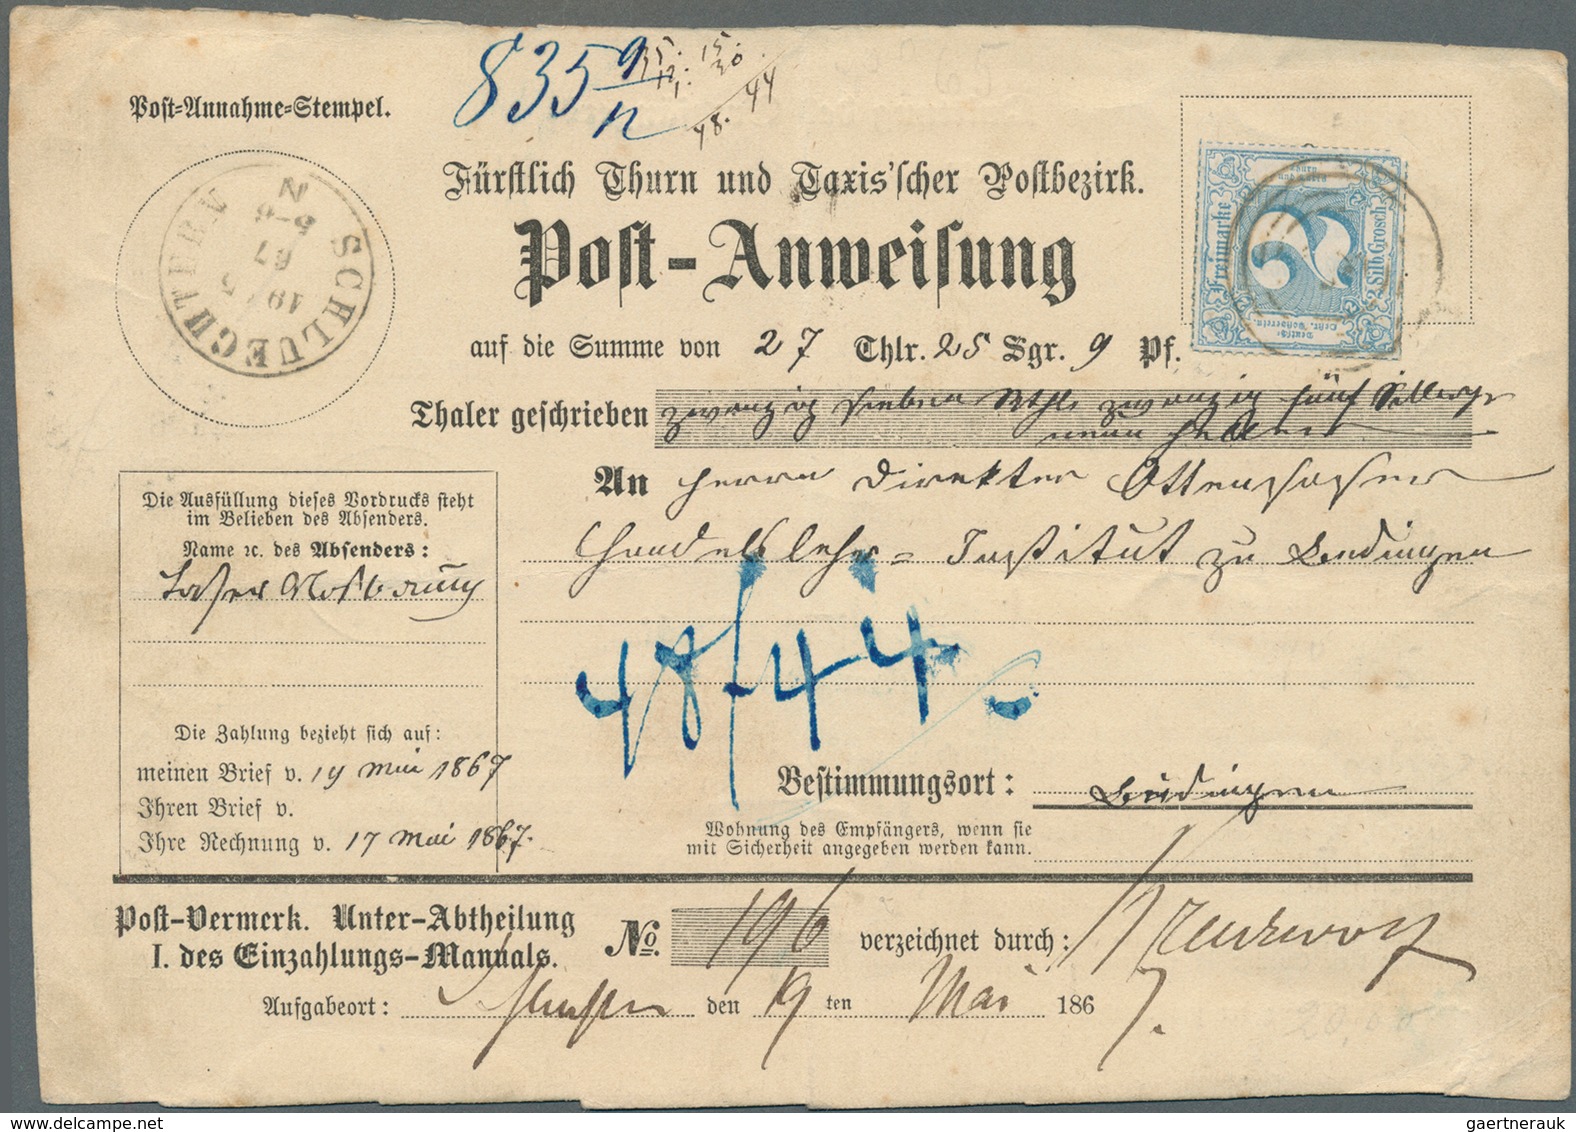 835 9/12
15. 15
12. 30
48. 44
Post-Annahme-Stempel.
SCHLUECHTERN
19 5
67
5-6
N
Fürstlich Thurn und Taxis'scher Postbezirk.
Post-Anweisung
Freimarke
2
2 Silb. Grosch
Deutsch
Oestr. Postverein.
auf die Summe von 27 Thlr. 25 Sgr. 9 Pf.
Thaler geschrieben zwanzig sieben Rthl. zwanzig fünf Silbergr
neun Heller
An Herrn Direktor
Handelslehr-Institut zu Büdingen
48/44
Die Ausfüllung dieses Vordrucks steht
im Belieben des Absenders.
Name ꝛc. des Absenders:
Die Zahlung bezieht sich auf:
meinen Brief v. 19 Mai 1867
Ihren Brief v.
Ihre Rechnung v. 17 Mai 1867.
Bestimmungsort: Büdingen
Wohnung des Empfängers, wenn sie
mit Sicherheit angegeben werden kann.
Post-Vermerk. Unter-Abtheilung
I. des Einzahlungs-Manuals.
No. 196 verzeichnet durch:
Aufgabeort: den 19 ten Mai 1867.
gaertnerauk